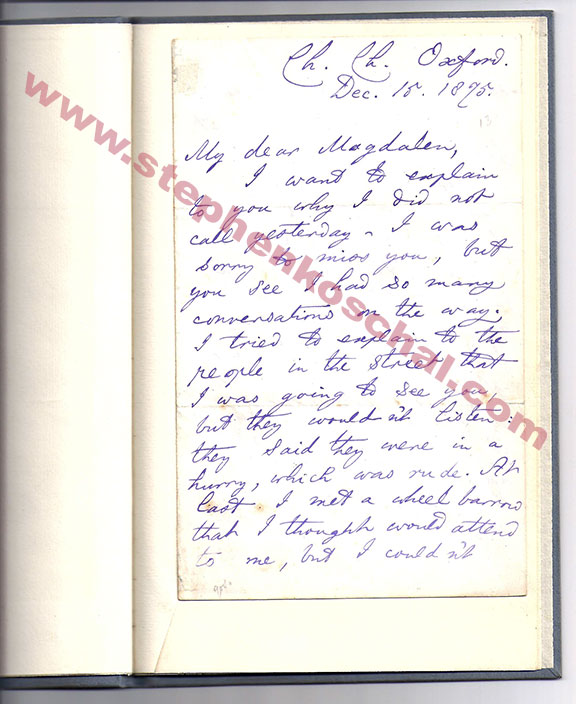 Ch. Ch. Oxford.
Dec. 15. 1875.
13
My dear Magdalen,
I want to explain
to you why I did not
call yesterday. I was
sorry to miss you, but
you see I had so many
conversations on the way.
I tried to explain to the
people in the street that
I was going to see you,
but they wouldn't listen:
they said they were in a
hurry, which was rude. At
last I met a wheelbarrow
that I thought would attend
to me, but I couldn't
www.stephenkoschal.com